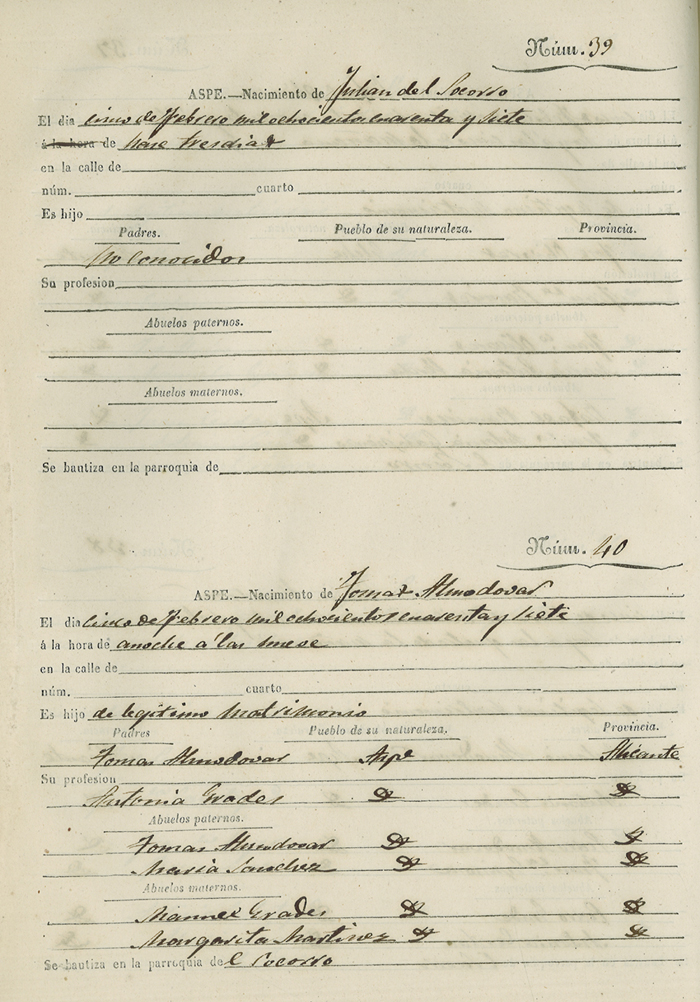 Núm. 39
ASPE.—Nacimiento de Julian del Socorro
El dia cinco de Febrero mil ochocientos cuarenta y siete
á la hora de hace tres dias
en la calle de
núm. cuarto
Es hijo
Padres. Pueblo de su naturaleza. Provincia.
No Conocidos
Su profesion
Abuelos paternos.
Abuelos maternos.
Se bautiza en la parroquia de
Núm. 40
ASPE.—Nacimiento de Tomas Almodovar
El dia cinco de Febrero mil ochocientos cuarenta y siete
á la hora de anoche á las nueve
en la calle de
núm. cuarto
Es hijo de legitimo matrimonio
Padres Pueblo de su naturaleza. Provincia.
Tomas Almodovar Aspe Alicante
Su profesion
Antonia Grades
Abuelos paternos.
Tomas Almodovar
Maria Sanchez
Abuelos maternos.
Manuel Grades
Margarita Martinez
Se bautiza en la parroquia del Socorro